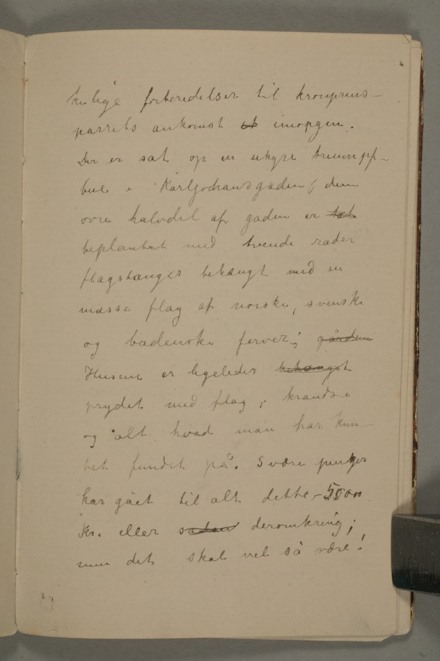 kelige forberedelser til kronprins-
parrets ankomst imorgen.
Der er sat op en uhyre triumpf-
bue i Karl Johansgaden; den
øvre halvdel af gaden er
beplantet med tvende rader
flagstænger behængt med en
masse flag af norske, svenske
og badenske farver; gården
Husene er ligeledes behængt
prydet med flag, krandse
og alt hvad man har kun-
net fundet på. Svære penger
har gået til alt dette – 5000
Kr. eller sådan deromkring;
men det skal vel så være!